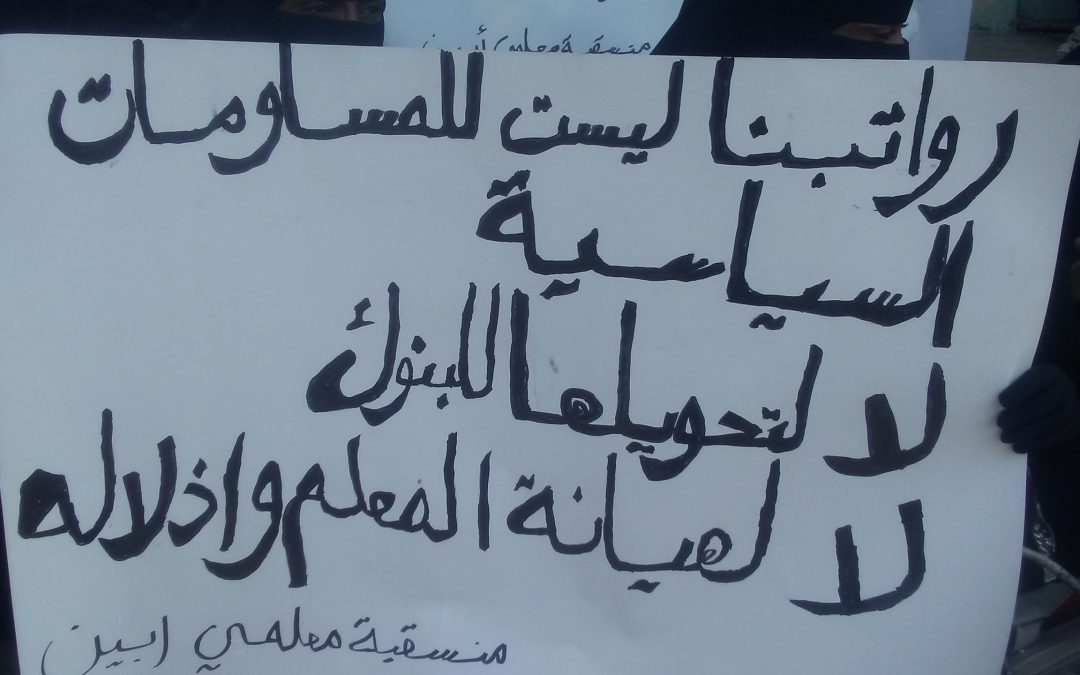 منسقية معلمي أبين
رواتبنا ليست للمساومات
السياسية
لا لتحويلها للبنوك
لا لهيانة المعلم واذلاله
منسقية معلمي ابين